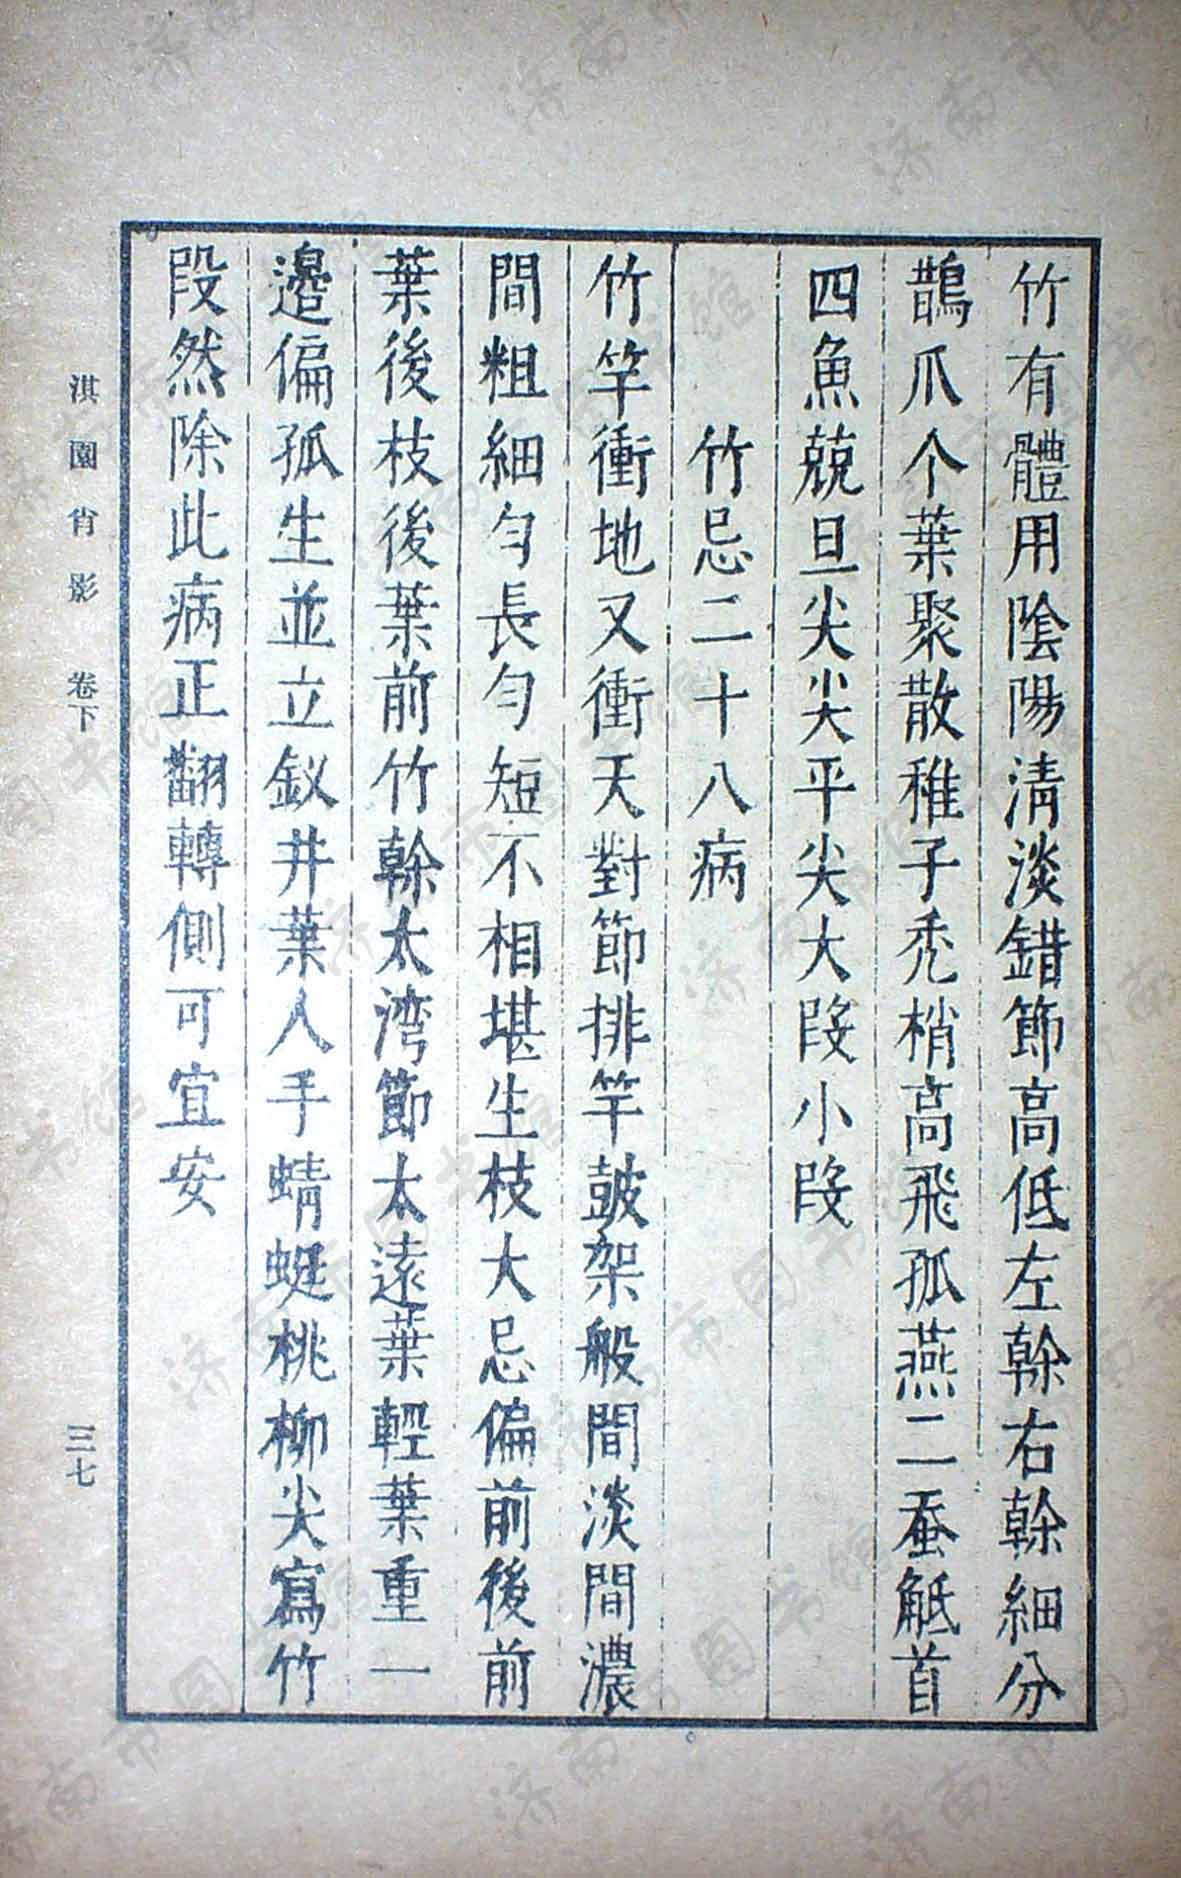 竹有體用陰陽清淡錯節高低左榦右榦細分
鵲爪个葉聚散稚子禿梢高飛孤燕二蚕觝首
四魚兢旦尖尖平尖大段小段
竹忌二十八病
竹竿衝地又衝天對節排竿皷架般間淡間濃
間粗細勻長勻短不相堪生枝大忌偏前後前
葉後枝後葉前竹榦太湾節太遠葉輕葉重一
邉偏孤生並立釵井葉人手蜻蜓桃柳尖寫竹
段然除此病正翻轉側可宜安
淇園肖影 卷下 三七
济南市图书馆